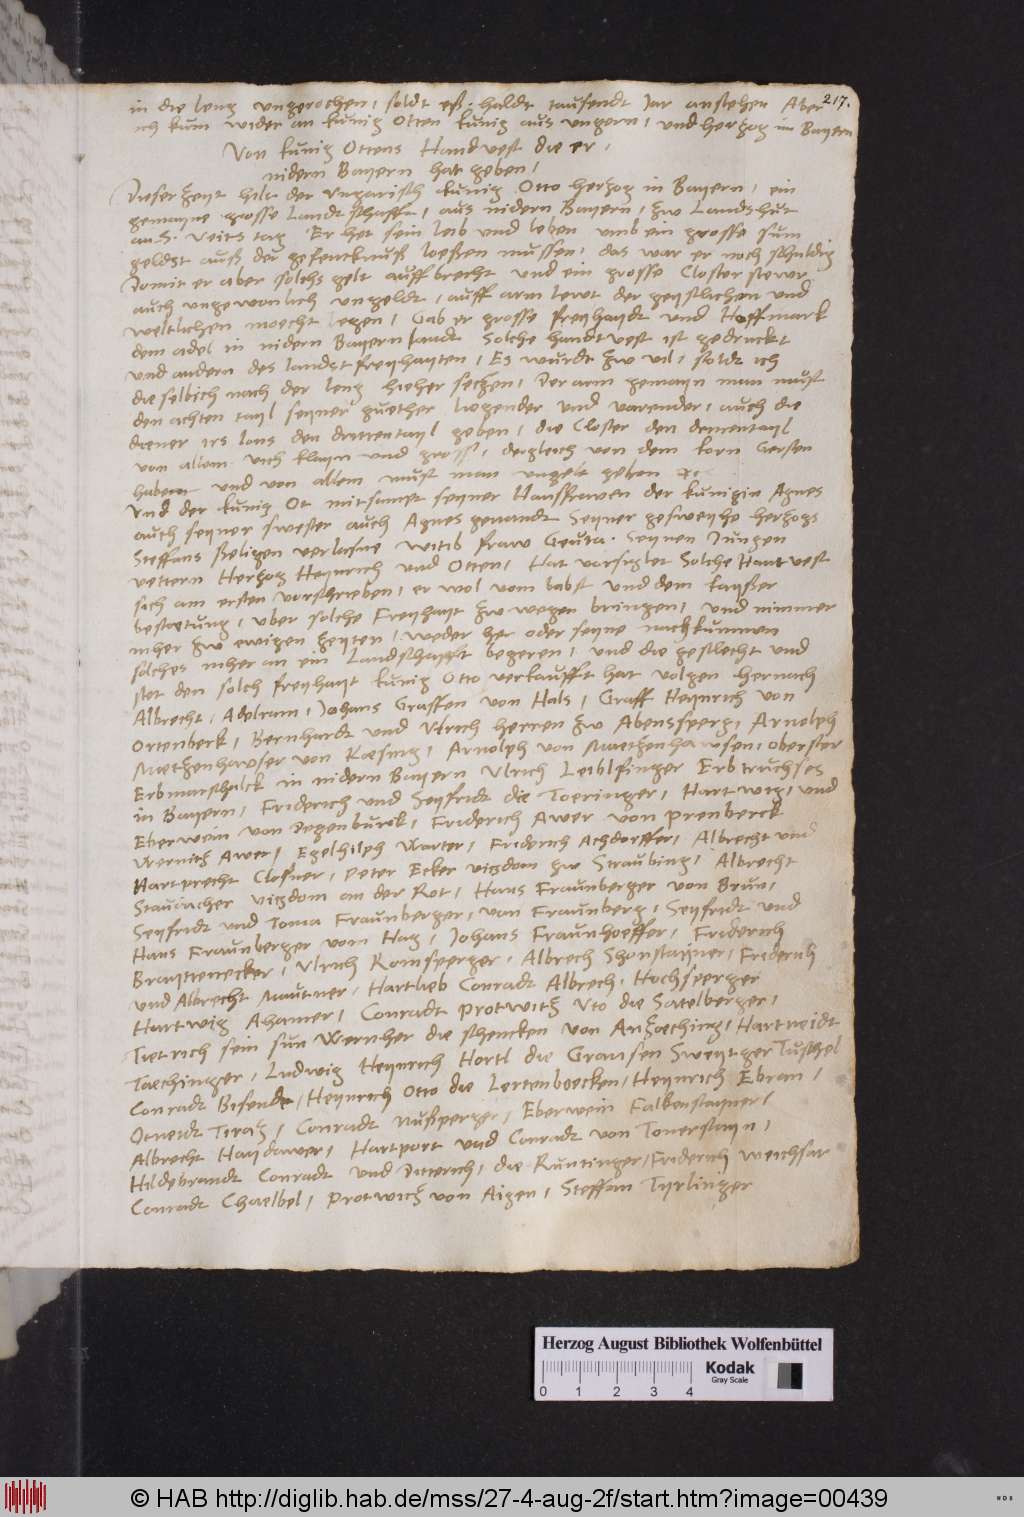 217.
in die leng ungerochen, soldt eß haldt tausendt jar anstehen Aber
ich kum wider an kunig Otten kunig aus ungern, und herzog in Bayern
Von kunig Ottens Handvest die er,
nidern Bayern hat geben,
Dieser zeyt hilt der ungarisch kunig Otto herzog in Bayern, ein
gemayne grosse Landtschafft, aus nidern Bayern, zw Landshut
an S. Veits tag Er het sein leib und leben umb ein grosse sum
geldzt auß der gefencknuß loeßen mussen, das war er noch schuldig
Domit er aber solchs gelt auff brecht und ein grosse Closter stewr
auch ungewonlich ungeldt, auff arm lewt der geystlichen und
weltlichen moecht legen, Gab er grosse freyhaydt und Hoffmark
dem adel in nidern Bayern landt Solche handtvest ist gedruckt
und andern des landzt freyhayten, Es wurde zw vil, soldt ich
die selbich nach der leng hieher seczen, Der arm gemayn man must
den achten tayl seyner guether ligender und varender, auch die
diener irs lons den dritten tayl geben, die Closter den
von allem vich klayn und gross, dergleich von dem korn Gersten
habern und von allem must man ungelt geben
Und der kunig Ot mitsampt seyner Hausfrawen der kunigin Agnes
auch seyner swester auch Agnes genandt Seyner gesweyhe herzogs
Steffans Seligen verlasne witib fraw Geuta. Seynen Jungen
vettern Herzog Heynrich und Otten, Hat versiglet Solche Hantvest
sich am ersten verschrieben, er wol vom babst und dem kayßer
bestetung, uber solche Freyhayt zw wegen bringen, und nimmer
mher zw ewigen zeyten, weder her oder seyne nachkummen
solches mher an ein Landschafft begeren, und die geslecht und
stet den solch freyhayt kunig Otto verkaufft hat volgen hernach
Albrecht, Adelram, Johans Graffen von Hals, Graff Heynrich von
Ortenberk, Bernhardt und Ulrich herren zw Abensperg, Arnolph
Maetzenhawser von Kaesing, Arnolph von Maetzenhawsen, oberster
Erbmarschalck in nidern Bayern Ulrich Leiblfinger Erbtruchses
in Bayern, Friderich und Seyfridt die Toeringer, Hartwig, und
Eberwein von Degenburck, Friderich Awer von Prenberck
Wernitz Awer, Egelhilph Warter, Friderich Achdorffer, Albrecht und
Hartprecht Closner, Peter Ecker vizdom zw Straubing, Albrecht
Staudacher vizdom an der Rot, Hans Fraunberger von Brun,
Seyfridt und Toma Fraunberger, von Fraunberg, Seyfridt und
Hans Fraunberger vom Hag, Johans Fraunhoeffer, Friderich
Braytenecker, Ulrich Romsperger, Albrech Shonstayner, Friderich
und Albrecht Mautner, Hartlieb Conradt Albrech, Hochsperger
Hartwig Ahamer, Conradt Protwitz Uto die Satelberger,
Tietrich sein sun Wernher die schencken von Anzoeching, Hartneidt
Taechinger, Ludwig Heynrich Hortl die Gransen Sweytger Tuschel
Conradt Bisende, Heynrich Otto die Lertenboecken, Heynrich Ebran,
Otneidt Tiraz, Conradt Nußperger, Eberwein Falkenstayner,
Albrecht Haydawer, Hartport und Conradt von Tonerstayn,
Hildebrandt Conradt und Ditterich, die Runtinger, Friderich Weichsar
Conradt Chaelbel, Protwich von Aigen, Steffan Tyrlinger
Herzog August Bibliothek Wolfenbüttel
0 1 2 3 4
Kodak
Gray Scale
© HAB http://diglib.hab.de/mss/27-4-aug-2f/start.htm?image=00439